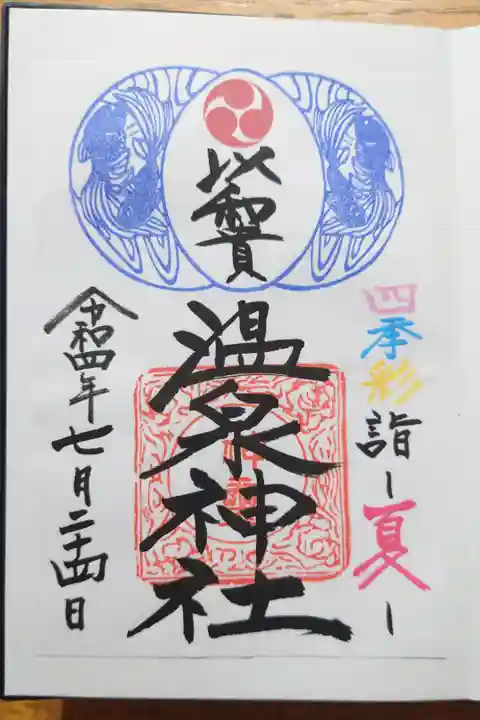 四季彩詣ー夏ー
以和貴
温泉神社
令和四年七月二十四日